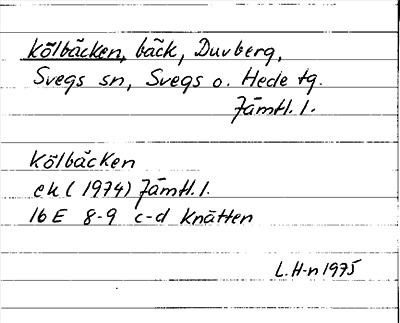 Kölbäcken, bäck, Duvberg,
Svegs sn, Svegs o. Hede tg.
Jämtl. l.
Kölbäcken
ek (1974) Jämtl. l.
16 E 8-9 c-d Knätten
L. H-n 1975